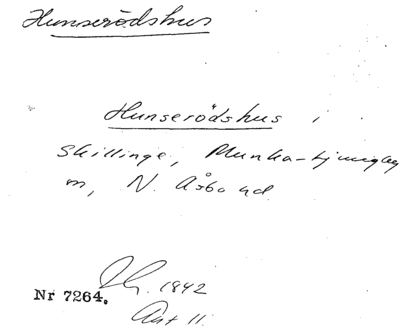 Hunserödshus
Hunserödshus i
Skillinge, Munka-Ljungby
m, N. Åsbo hd.
1842
Nr 7264.
Ant 11.